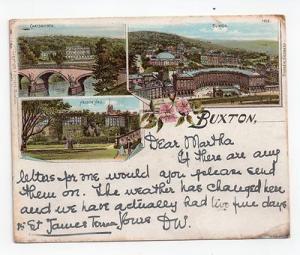 CHATSWORTH
BUXTON.
HADDON HALL
BUXTON,
Dear Martha
If there are any
letters for me would you please send
them on. The weather has changed here
and we have actually had five fine days
St James Terrace Yours D.W.